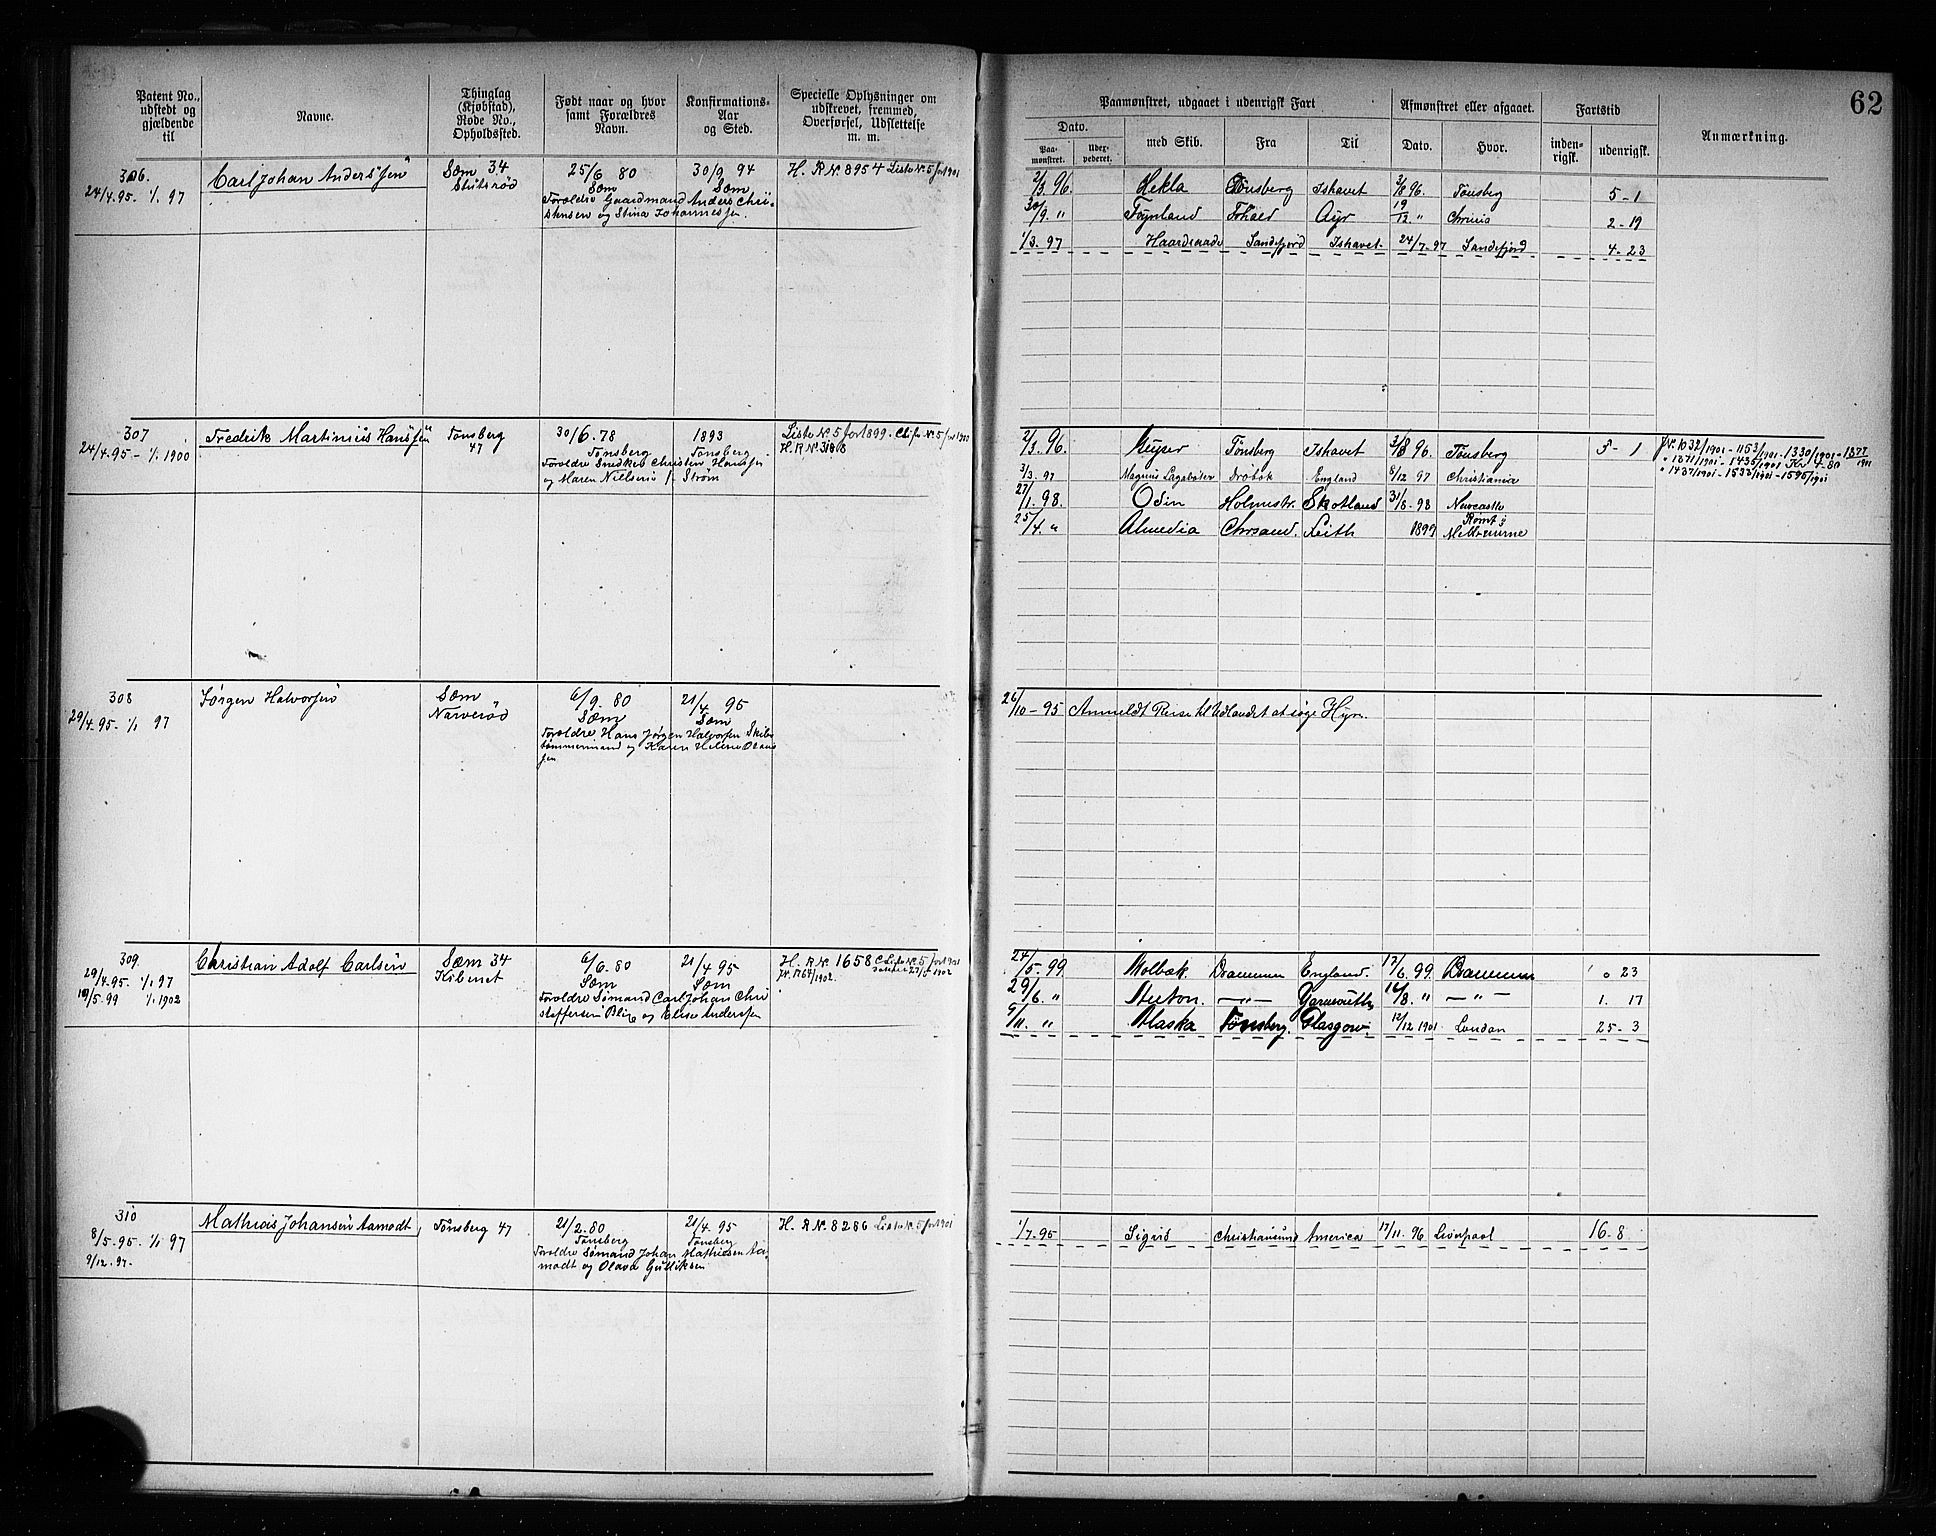 62
Patent No., udstedt og gjældende til
Navne.
Thinglag (Kjøbstad), Rode No., Opholdssted.
Født naar og hvor samt Forældres Navn.
Konfirmations-Aar og Sted.
Specielle Oplysninger om udskrevet, fremmed, Overførsel, Udslettelse m. m.
Paamønstret, udgaaet i udenrigsk Fart
Afmønstret eller afgaaet.
Fartstid
Anmærkning.
Dato.
Paa-mønstret.
Udex-pederet.
med Skib.
Fra
Til
Dato.
Hvor.
inden-rigsk.
udenrigsk.
306. Carl Johan Andersen Sæm 34 25/6 80 30/9 94 H. R No 8954 Liste No 5 for 1901
24/4.95- 1/1 97 Sæm Sæm
Forældre Gaardmand Anders Chri-
stensen og Stina Johannessen.
2/3 96. Hekla Tønsberg Ishavet 3/8 96. Tønsberg 5-1
30/9. " Ayr 19/12. " Chrinia 2-19
1/3.97 Haardraade Sandefjord Ishavet. 24/7-97 Sandefjord 4-23
307 Fredrik Martinius Hansen Tønsberg 30/6.78 1893 Liste No 5 for 1899.
24/4.95 - 1/1 1900 47 Tønsberg Tønsberg H. R No 3168
Forældre Snedker Christen Hansen
og Maren Nielsen f. Strøm
2/3 96. Geyser Tønsberg Ishavet 3/8 96. Tønsberg 5-1
3/3.97 Magnus Lagabøter Drøbak England 8/12 97 Christiania
27/1.98. Odin Holmestr. Skotland 31/8-98 Newcastle
25/4. " Almedia Chrsand. Leith 1899 Rømt i Melbourne
JNo 1032/1901 - 1153/1901 - 1330/1901 - 1377/1901
" 1371/1901 - 1435/1901 Kr 4-80
" 1437/1901 - 1533/1901 - 1596/1901
308 Jørgen Halvorsen Sæm 6/9.80 21/4 95
29/4.95- 1/1 97 Narverød Sæm Sæm
Forældre Hans Jørgen Halvorsen Skibs
tømmermand og Karen Helene Olaus
sen
26/10-95 Anmeldt Reise til Udlandet at søge Hyre.
309 Christian Adolf Carlsen Sæm 34 6/6.80 21/4 95 H. R No 1658
29/4.95. 1/1 97 Sæm Sæm
19/5.99 1/1.1902
Forældre Sømand Carl Johan Chri
stoffersen og Elise Andersen
24/5-99. Molbæk Drammen England. 17/6.99. Drammen " 23
29/6. " Teuton. —"— Yarmouth 16/8. " —"— 1. 17
9/11. " Alaska Tønsberg. Glasgow. 12/12 1901 London 25-3
310 Mathias Johansen Aamodt Tønsberg 47 21/2.80 21/4.95 H. R No 8286 Liste No 5 for 1901
8/5-95- 1/1 97 Tønsberg Tønsberg
9/12.97.
Forældre Sømand Johan Mathisen Aa-
modt og Olava Gulliksen
1/7-95 Sigrid Christiansund America 17/11.96 Liverpool 16-8